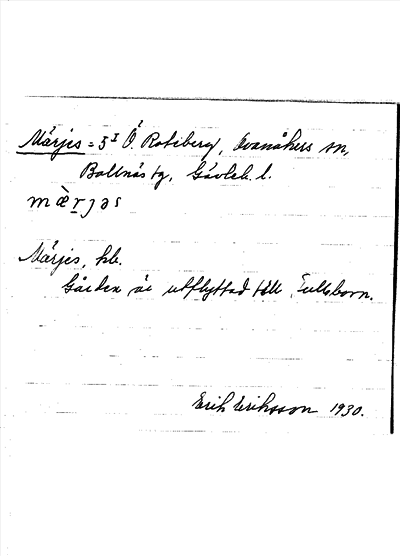 Märjes = 5 I Ö. Roteberg, Ovanåkers sn,
Bollnäs tg, Gävleb. l.
mæ̀rjəs
Märjes, hb.
Gården är utflyttad till Tullsborn.
Erik Eriksson 1930.